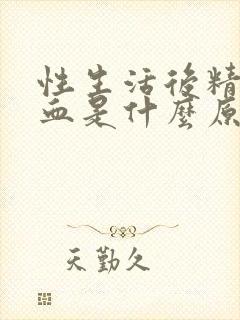 性生活後精
血是什麼原
天勤久